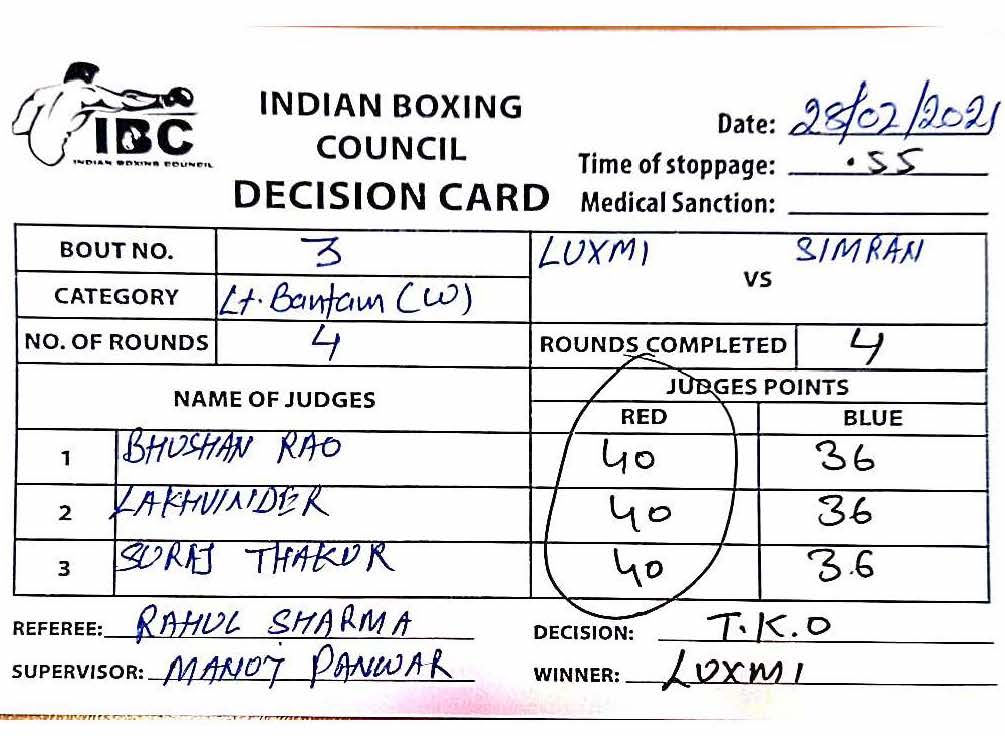 IBC
INDIAN BOXING COUNCIL
INDIAN BOXING
COUNCIL
DECISION CARD
Date: 28/02/2021
Time of stoppage: .55
Medical Sanction:
BOUT NO. 3
LUXMI VS SIMRAN
CATEGORY Lt. Bantam (W)
NO. OF ROUNDS 4 ROUNDS COMPLETED 4
NAME OF JUDGES JUDGES POINTS
RED BLUE
1 BHUSHAN RAO 40 36
2 LAKHVINDER 40 36
3 SURAJ THAKUR 40 36
REFEREE: RAHUL SHARMA DECISION: T.K.O
SUPERVISOR: MANOJ PANWAR WINNER: LUXMI